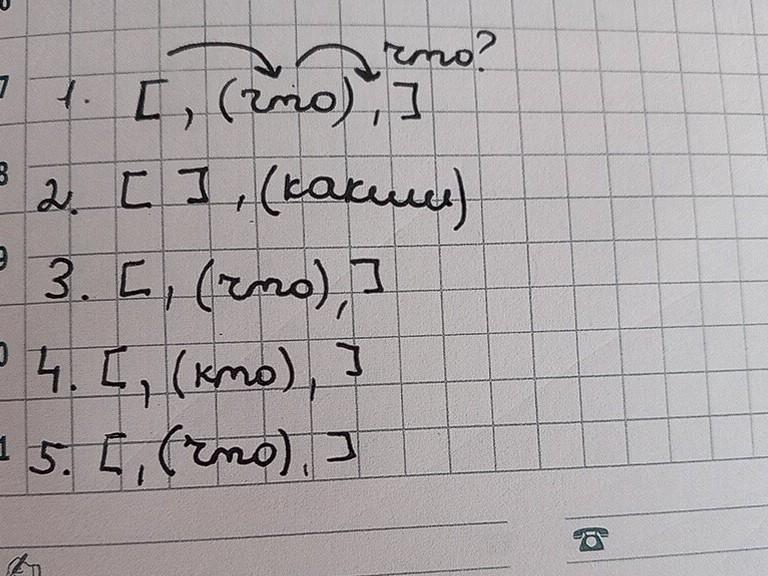 что?
7 1. [, (что), ]
8 2. [ ], (какими)
9 3. [, (что), ]
0 4. [, (кто), ]
1 5. [, (что), ]